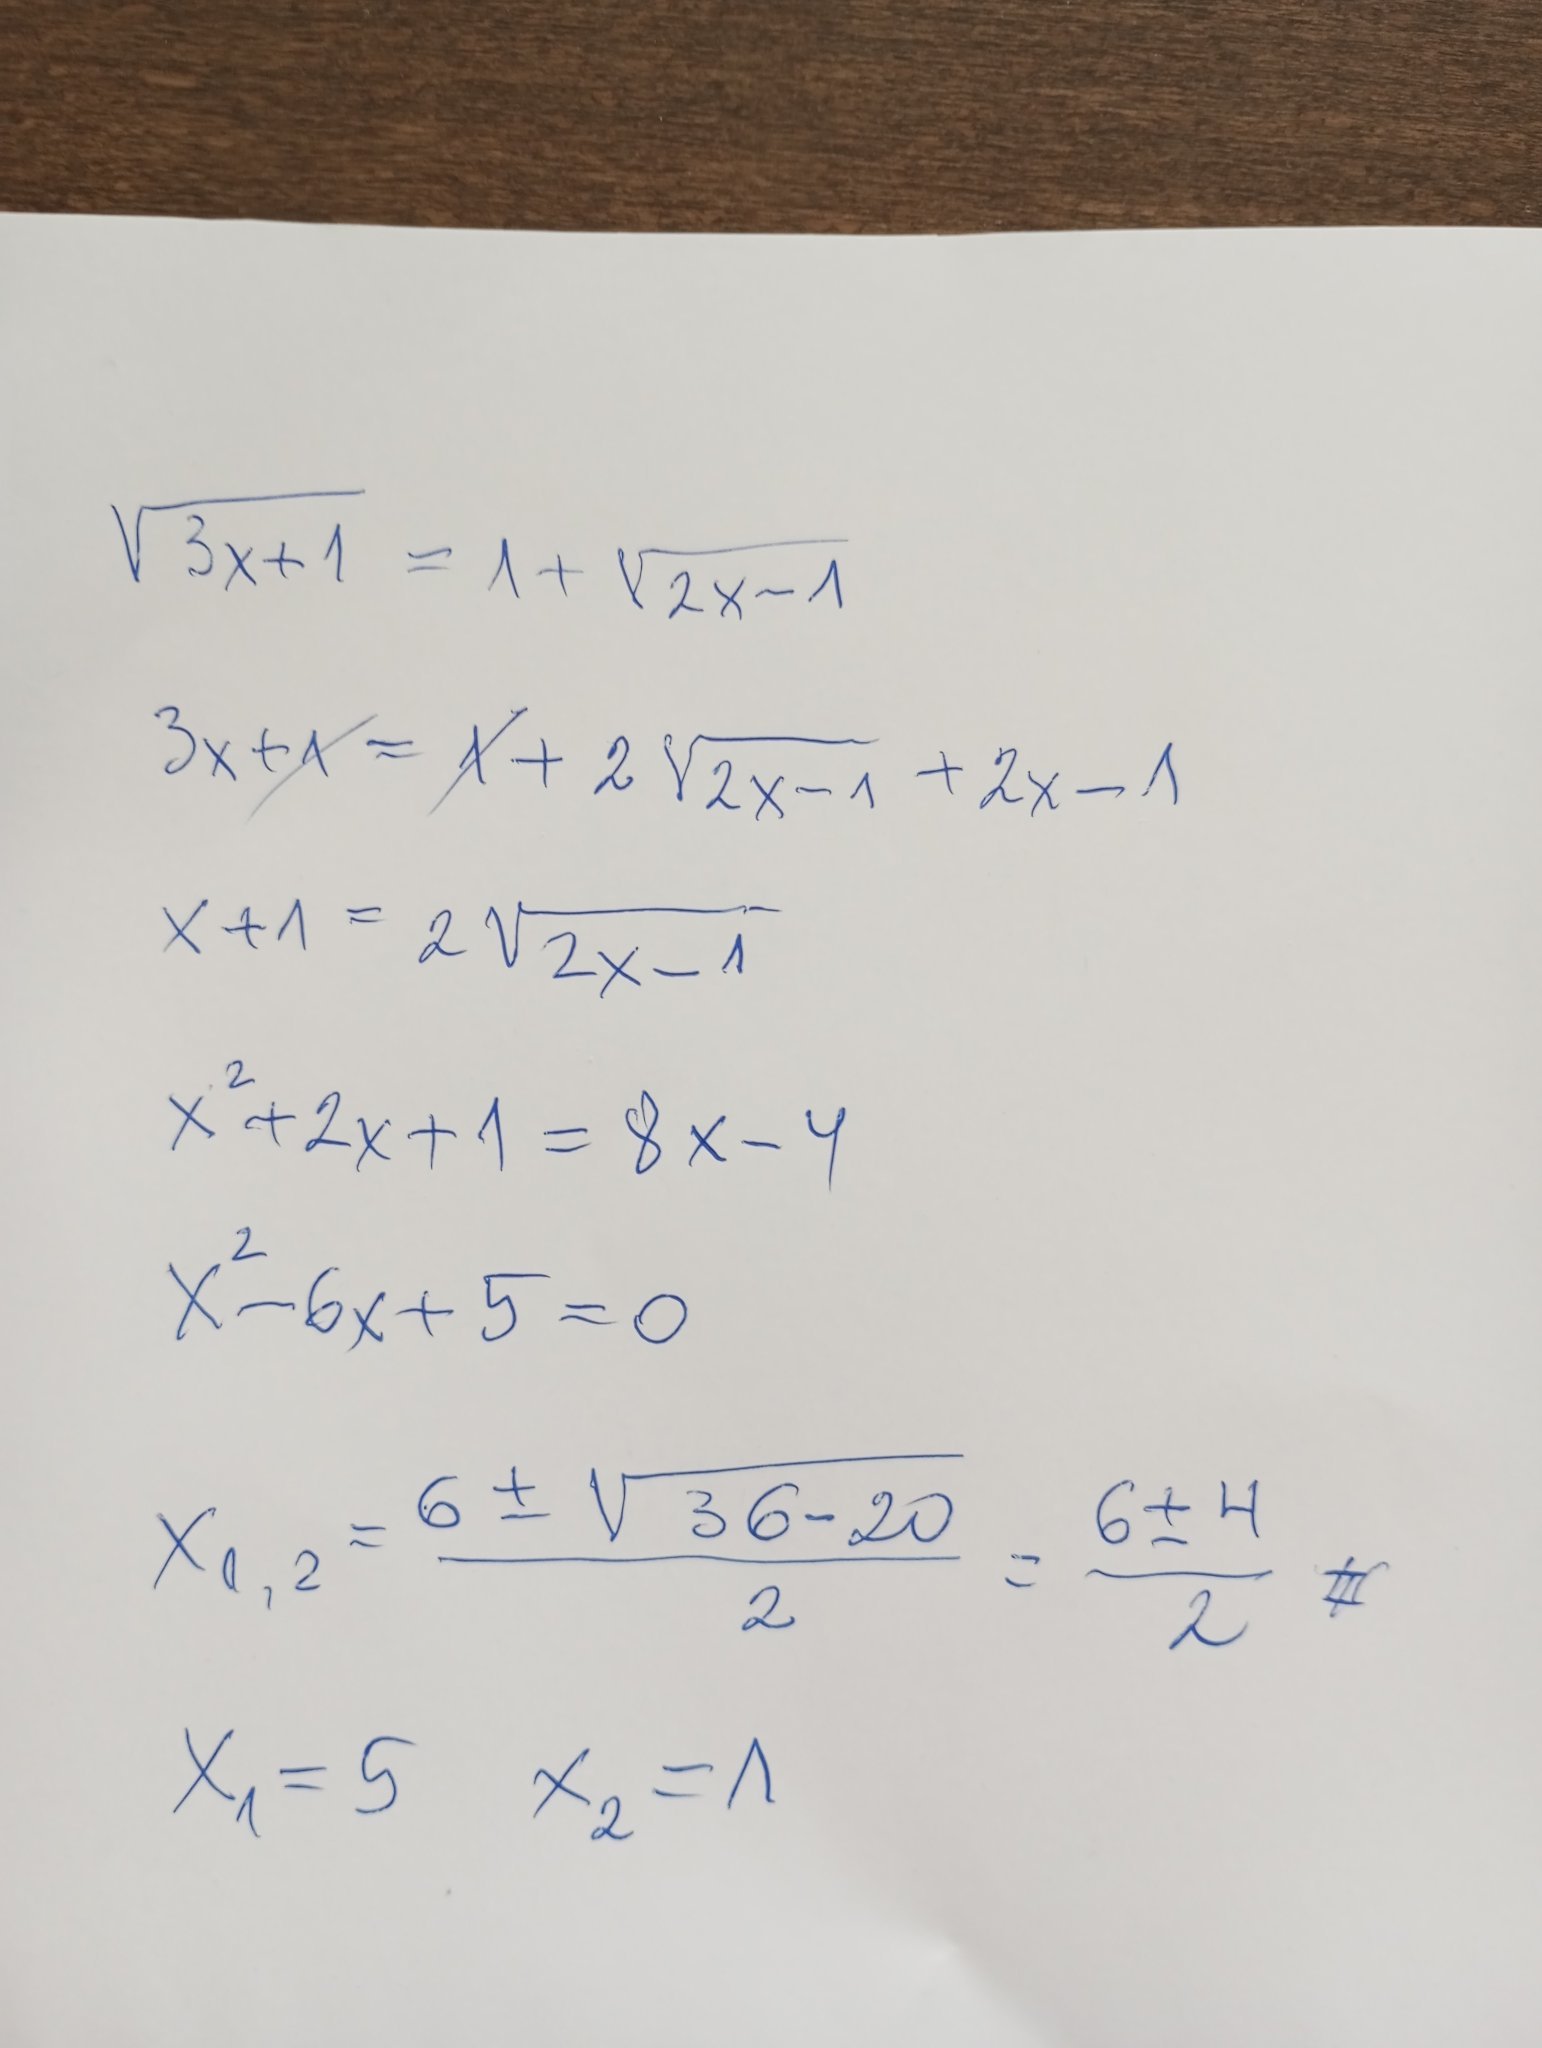 √(3x+1) = 1 + √(2x-1)
3x+1 = 1 + 2√(2x-1) + 2x-1
x+1 = 2√(2x-1)
x²+2x+1 = 8x-4
x²-6x+5=0
x₁,₂ = (6 ± √(36-20))/2 = (6±4)/2
x₁=5 x₂=1